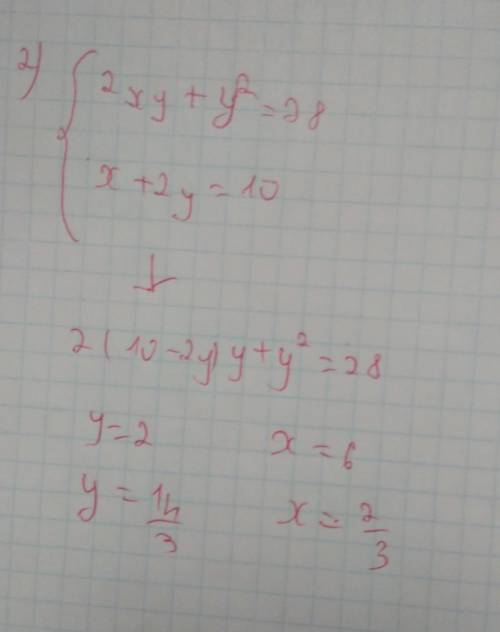 2) 2xy + y² = 28
x + 2y = 10
2(10 - 2y)y + y² = 28
y = 2 x = 6
y = 14/3 x = 2/3